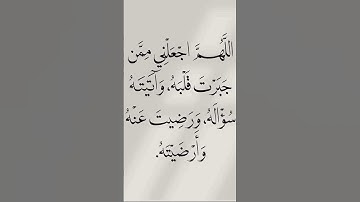 اللَّهُمَّ اجْعَلْنِي مِمَّن
جَبَرْتَ قَلْبَهُ، وَآتَيْتَهُ
سُؤْلَهُ، وَرَضِيتَ عَنْهُ
وَأَرْضَيْتَهُ.